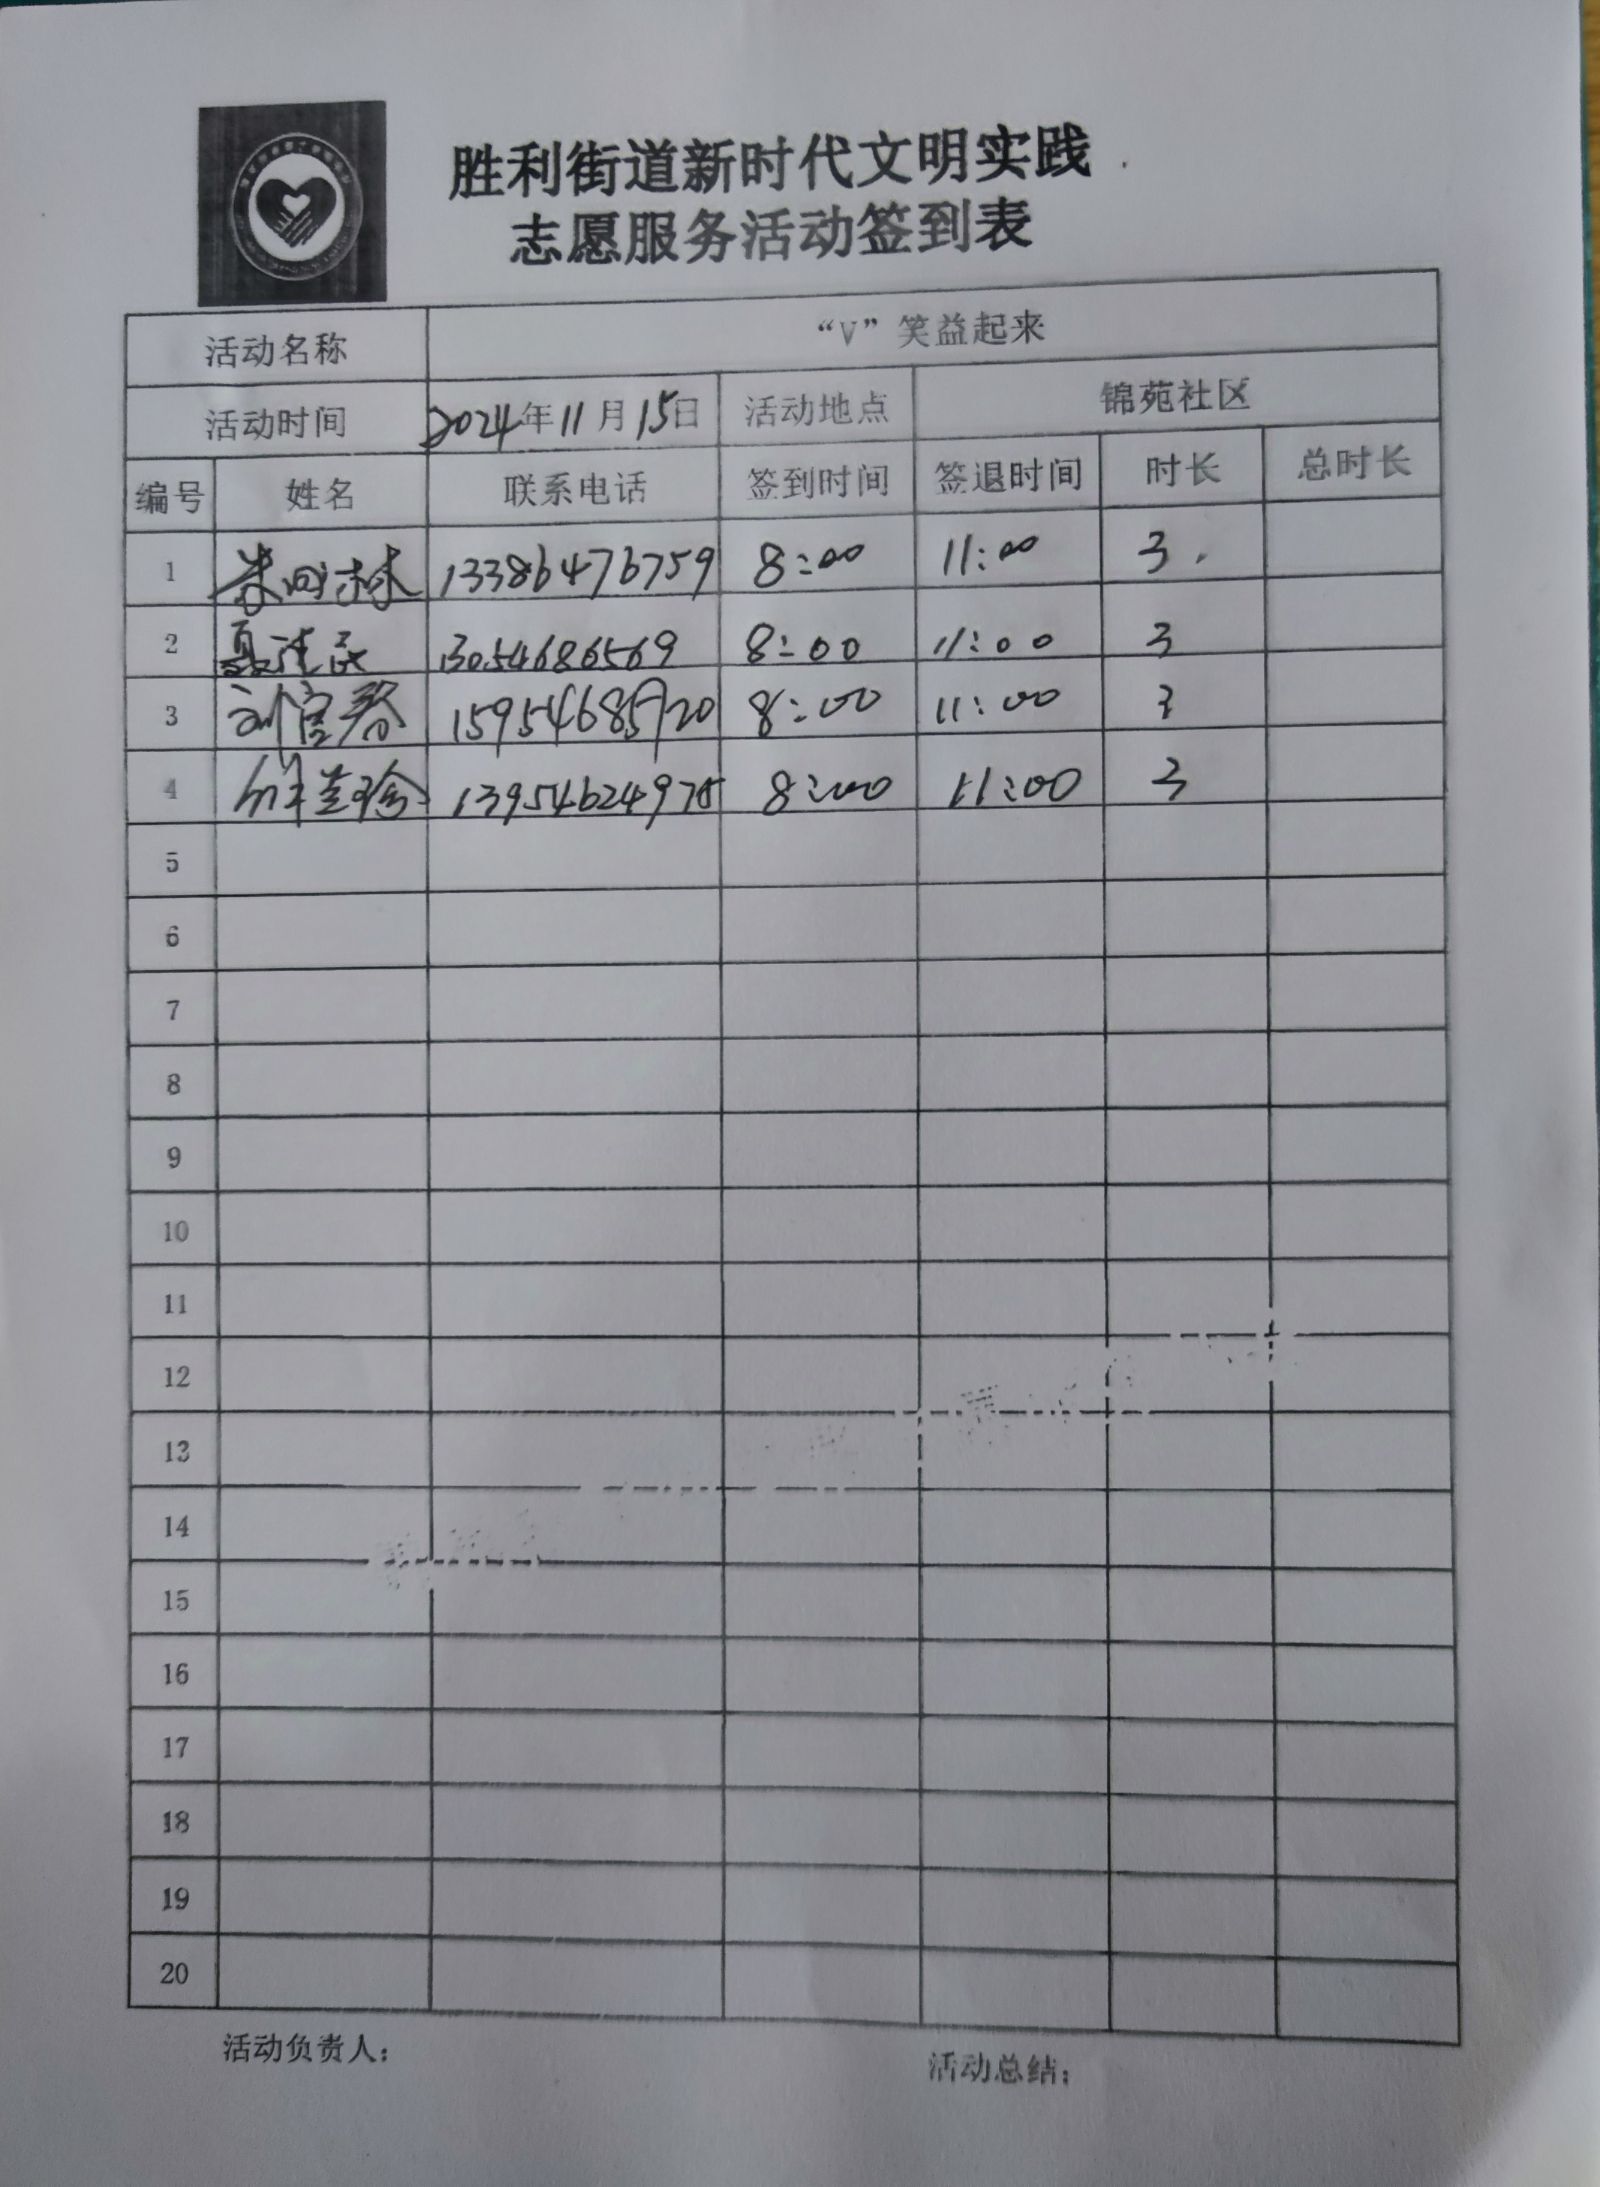 胜利街道新时代文明实践
志愿服务活动签到表
活动名称 “V”笑益起来
活动时间 2024年11月15日 活动地点 锦苑社区
编号 姓名 联系电话 签到时间 签退时间 时长 总时长
1 13386476759 8:00 11:00 3
2 13054686569 8:00 11:00 3
3 刘官春 8:00 11:00 3
4 8:00 11:00 3
5
6
7
8
9
10
11
12
13
14
15
16
17
18
19
20
活动负责人： 活动总结：